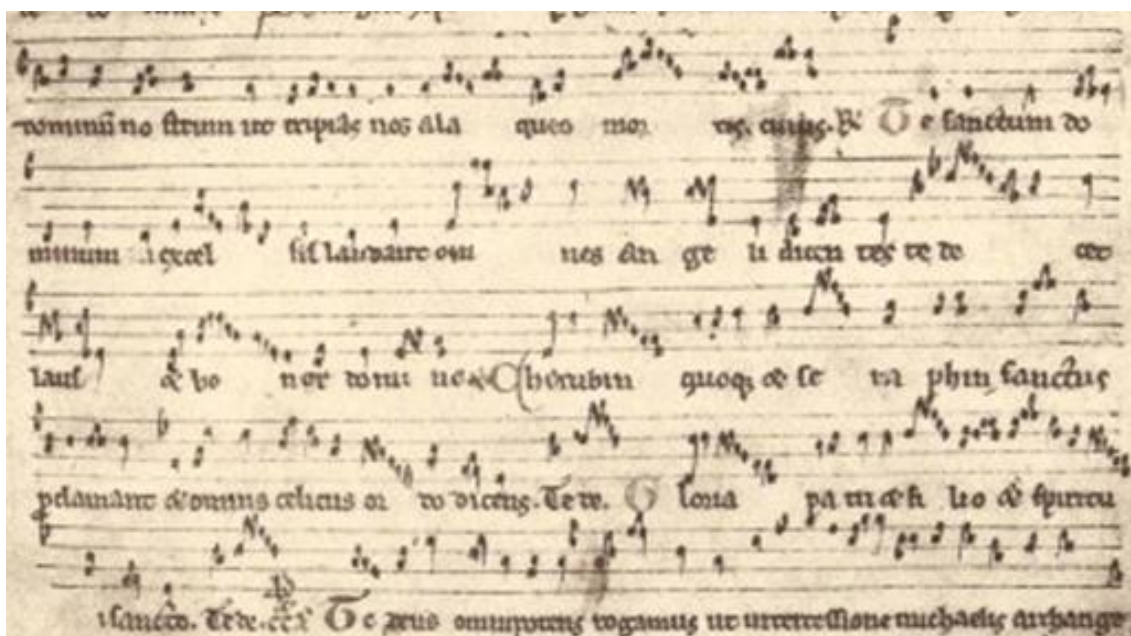 nos a la queo mor tis. cuius. R' Te sanctum do
minum i excel sis laudant om nes an ge li dicen tes te de cet
laus & ho nor domi ne Cherubin quoq; & se ra phin sanctus
pclamant & omnis celicus or do dicens. Te de. Gloria pa tri & fi lio & spiritu
sancto. Te de. Te deus omnipotens rogamus ut intercessione michaelis archange